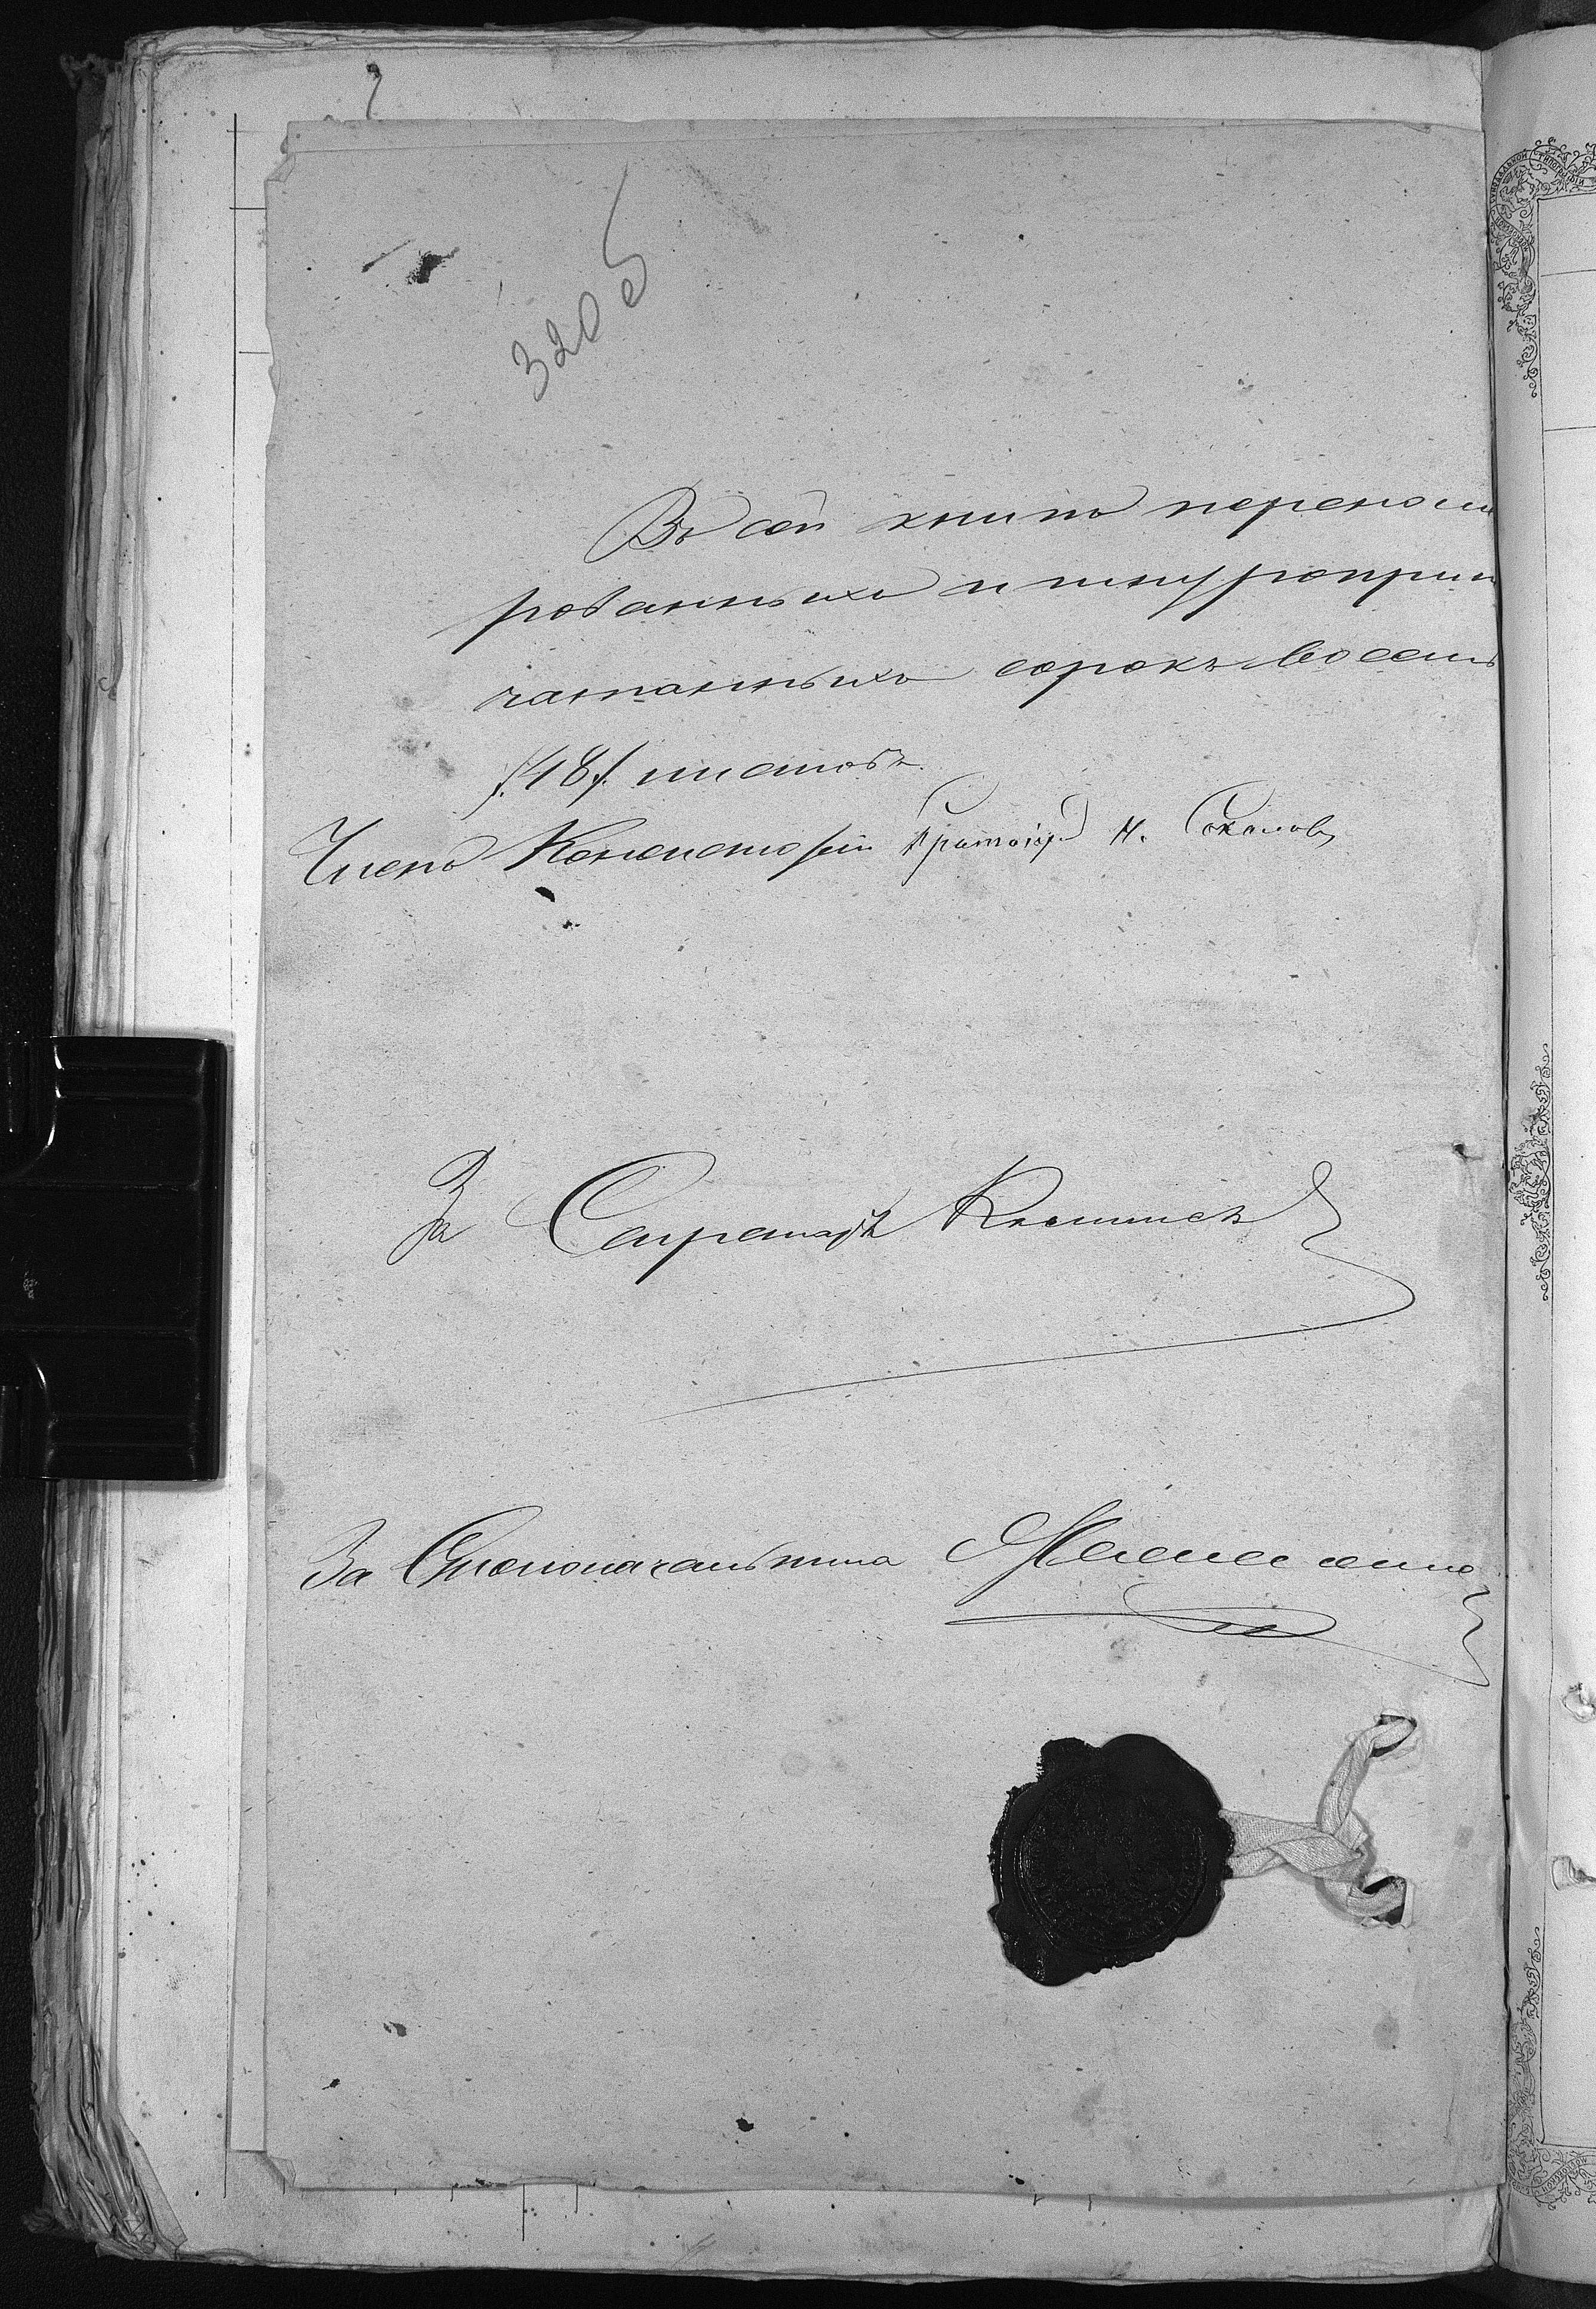 320 об
Въ сей книгѣ перенуме
рованныхъ и шнуроприпе
чатанныхъ сорокъ восемь
/48/ листовъ.
Членъ Консисторіи Протоіер. Н. Соколовъ
За Секретаря
За Столоначальника